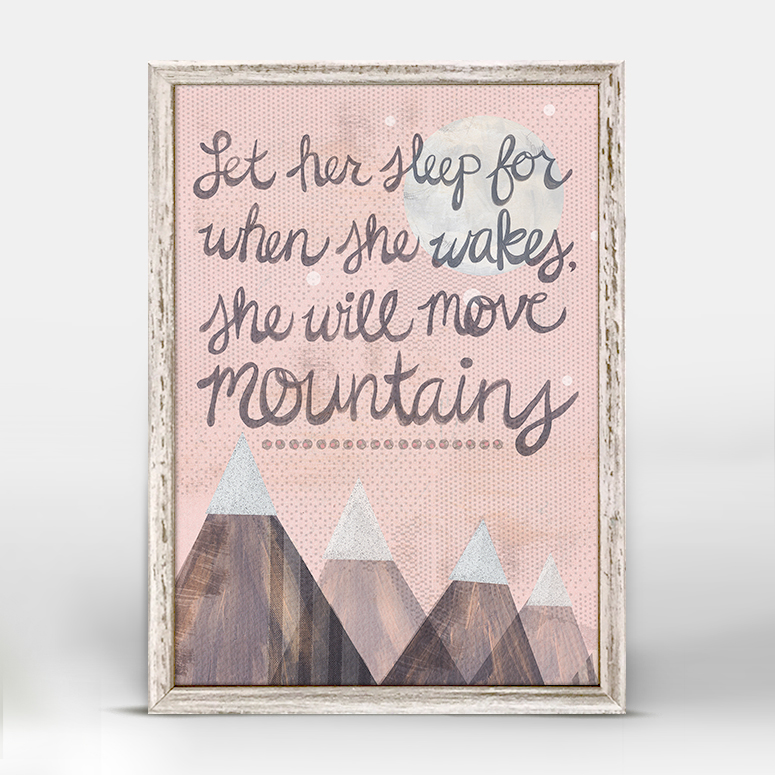 Let her sleep for
when she wakes,
she will move
mountains